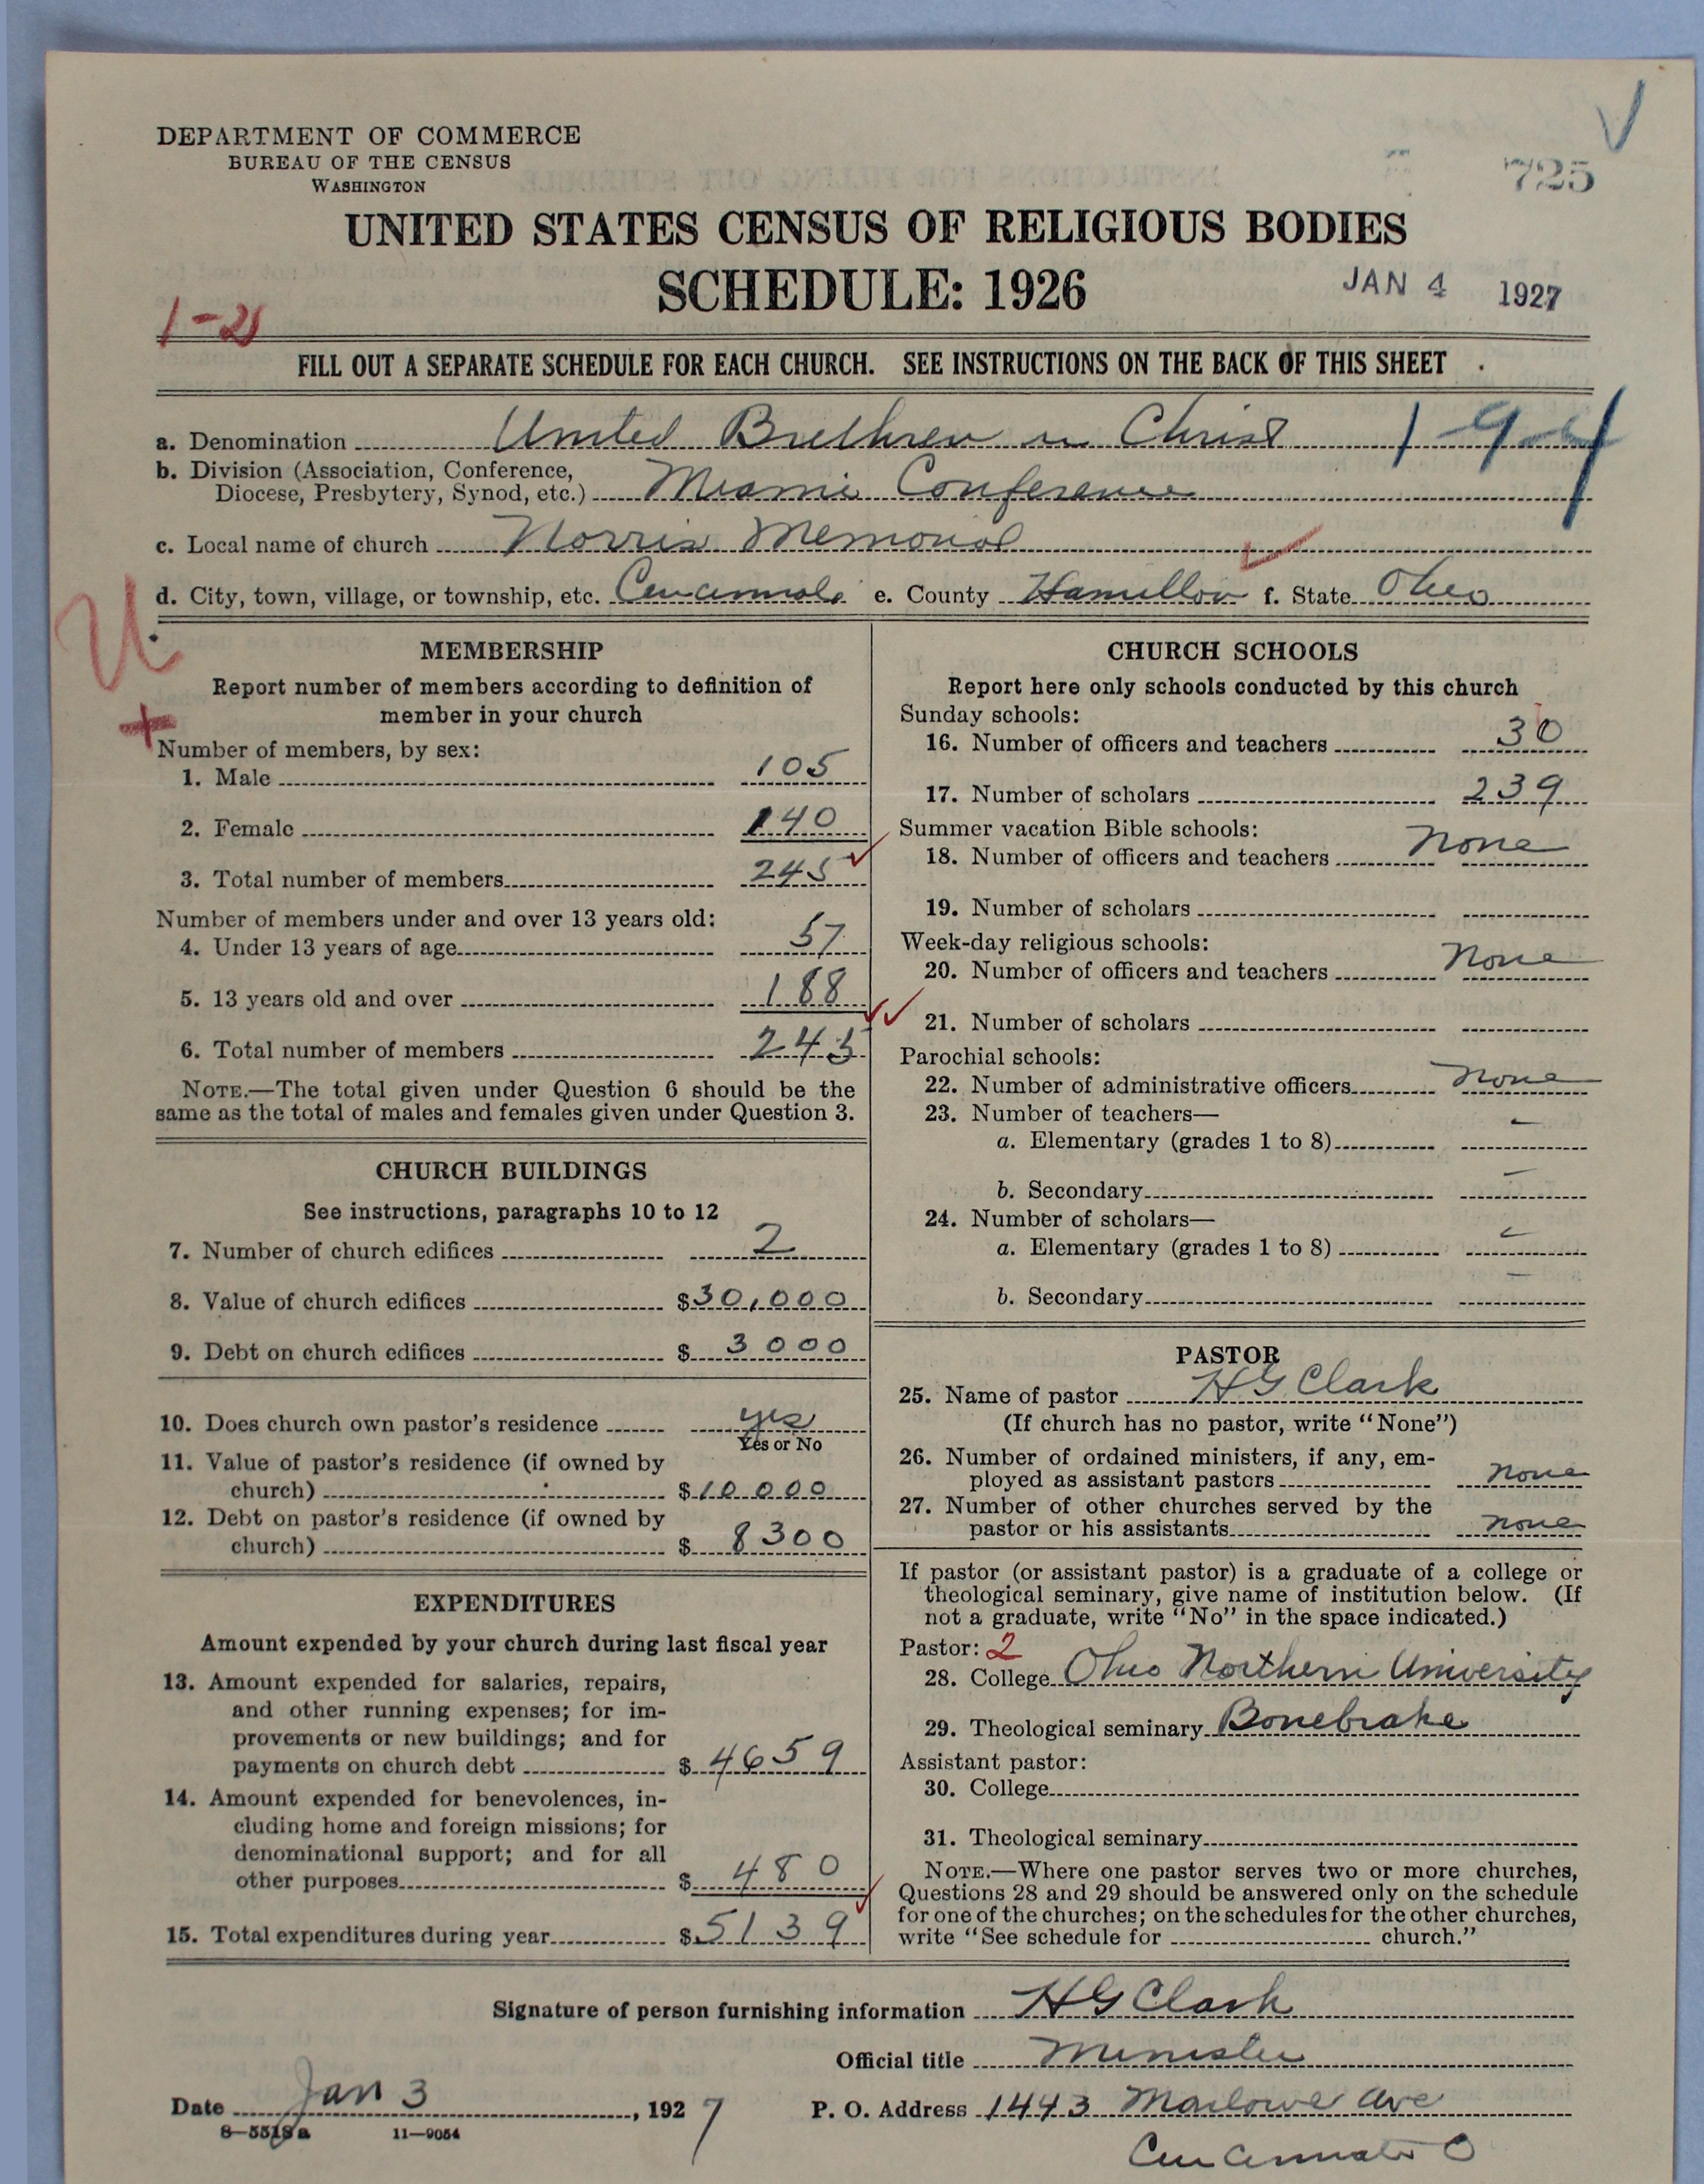 DEPARTMENT OF COMMERCE
BUREAU OF THE CENSUS
WASHINGTON
725
UNITED STATES CENSUS OF RELIGIOUS BODIES
SCHEDULE: 1926
JAN 4 1927
1-21
FILL OUT A SEPARATE SCHEDULE FOR EACH CHURCH. SEE INSTRUCTIONS ON THE BACK OF THIS SHEET
a. Denomination United Brethren in Christ 1-9-4
b. Division (Association, Conference,
Diocese, Presbytery, Synod, etc.) Miami Conference
c. Local name of church Norris Memorial
d. City, town, village, or township, etc. Cincinnati e. County Hamilton f. State Ohio
U
MEMBERSHIP
Report number of members according to definition of
member in your church
Number of members, by sex:
1. Male 105
2. Female 140
3. Total number of members 245
Number of members under and over 13 years old:
4. Under 13 years of age 57
5. 13 years old and over 188
6. Total number of members 245
NOTE.—The total given under Question 6 should be the
same as the total of males and females given under Question 3.
CHURCH BUILDINGS
See instructions, paragraphs 10 to 12
7. Number of church edifices 2
8. Value of church edifices $30,000
9. Debt on church edifices $ 3000
10. Does church own pastor's residence yes
Yes or No
11. Value of pastor's residence (if owned by
church) $10000
12. Debt on pastor's residence (if owned by
church) $ 8300
EXPENDITURES
Amount expended by your church during last fiscal year
13. Amount expended for salaries, repairs,
and other running expenses; for im-
provements or new buildings; and for
payments on church debt $ 4659
14. Amount expended for benevolences, in-
cluding home and foreign missions; for
denominational support; and for all
other purposes $ 480
15. Total expenditures during year $5139
CHURCH SCHOOLS
Report here only schools conducted by this church
Sunday schools:
16. Number of officers and teachers 30
17. Number of scholars 239
Summer vacation Bible schools:
18. Number of officers and teachers None
19. Number of scholars
Week-day religious schools:
20. Number of officers and teachers None
21. Number of scholars
Parochial schools:
22. Number of administrative officers None
23. Number of teachers—
a. Elementary (grades 1 to 8) -
b. Secondary -
24. Number of scholars—
a. Elementary (grades 1 to 8) -
b. Secondary -
PASTOR
25. Name of pastor H G Clark
(If church has no pastor, write "None")
26. Number of ordained ministers, if any, em-
ployed as assistant pastors none
27. Number of other churches served by the
pastor or his assistants none
If pastor (or assistant pastor) is a graduate of a college or
theological seminary, give name of institution below. (If
not a graduate, write "No" in the space indicated.)
Pastor: 2
28. College Ohio Northern University
29. Theological seminary Bonebrake
Assistant pastor:
30. College
31. Theological seminary
NOTE.—Where one pastor serves two or more churches,
Questions 28 and 29 should be answered only on the schedule
for one of the churches; on the schedules for the other churches,
write "See schedule for church."
Signature of person furnishing information H G Clark
Official title Minister
Date Jan 3, 1927 P. O. Address 1443 Marlowe Ave
8—5518a 11—9054
Cincinnati O